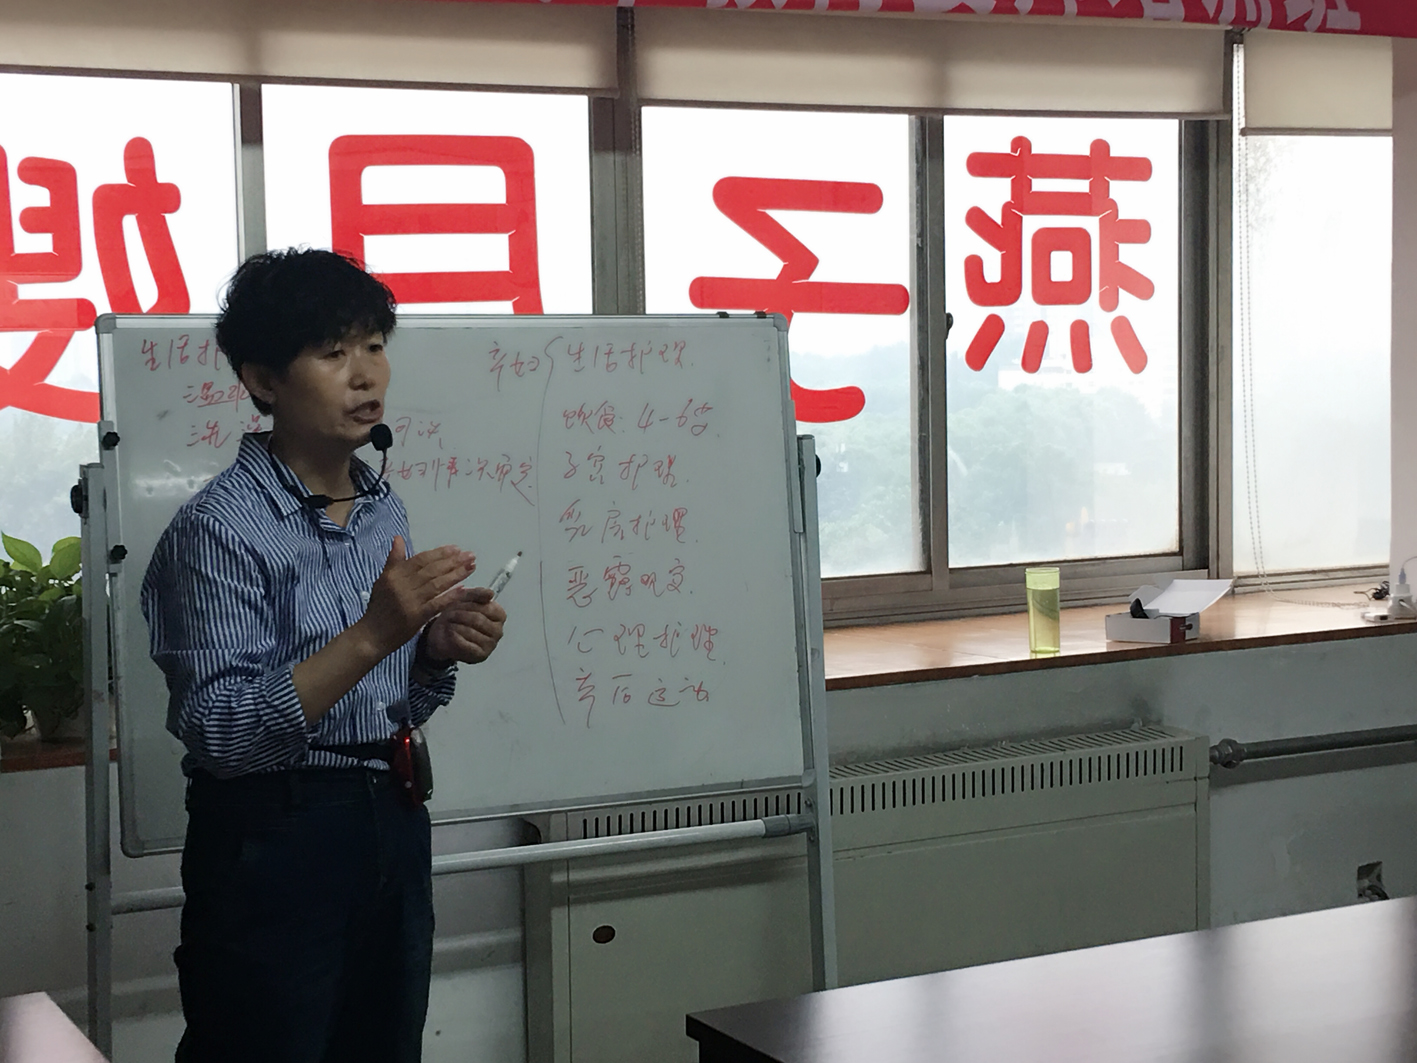 燕子月嫂
生活护
温
洗
可认
产妇情况而定
产妇 { 生活护理.
饮食: 4-6次.
子宫护理.
乳房护理.
恶露观察.
心理护理.
产后运动